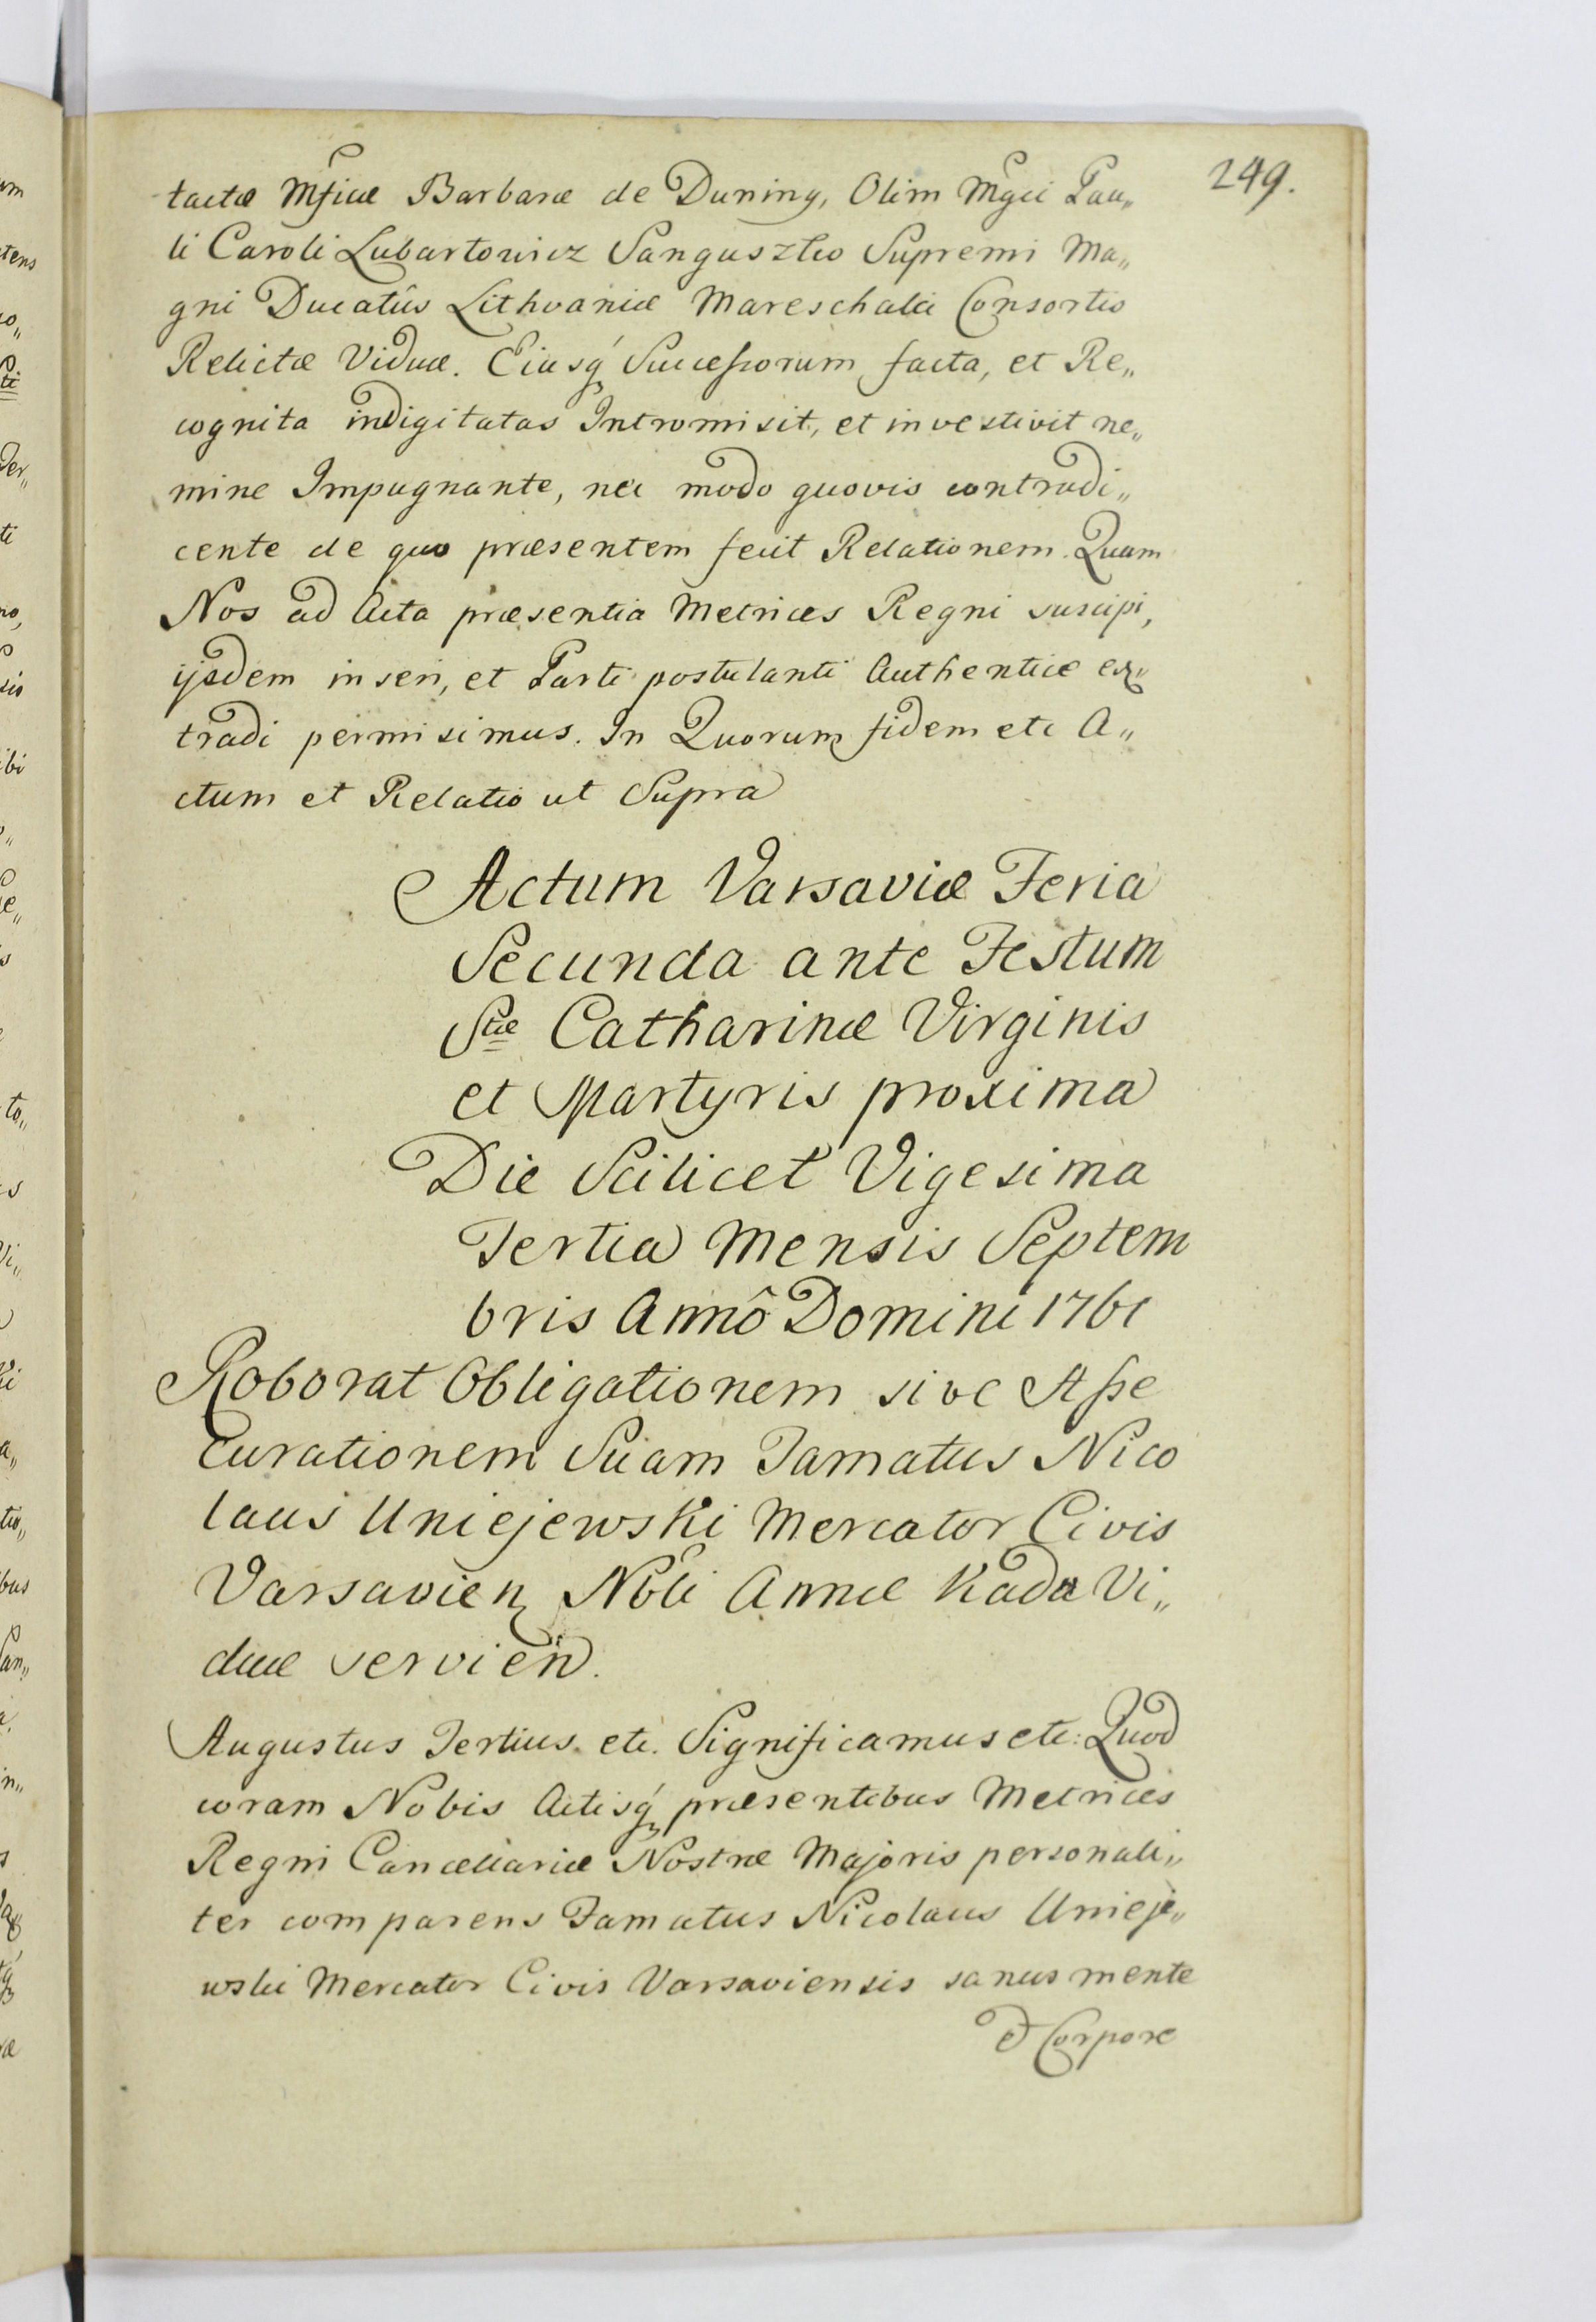 249.
tactæ Mficæ Barbaræ de Duning, Olim Mgci Pau„
li Caroli Lubartowicz Sanguszko Supremi Ma„
gni Ducatûs Lithvaniæ Mareschalci Consortis
Relictæ Viduæ. Eiusq́ Sucessorum facta, et Re„
cognita indigitatas Intromisit, et investivit ne„
mine Impugnante, nec modo quovis contradi„
cente de quo præsentem fecit Relationem. Quam
Nos ad Acta præsentia Metrices Regni suscipi,
ijsdem inseri, et Parti postulanti Authentice ex„
tradi permisimus. In Quorum fidem etc A„
ctum et Relatio ut Supra
Actum Varsaviæ Feria
Secunda ante Festum
Stæ Catharinæ Virginis
et Martyris proxima
Die Scilicet Vigesima
Tertia Mensis Septem
bris Annô Domini 1761
Roborat Obligationem sive Asse
curationem Suam Famatus Nico
laus Uniejewski Mercator Civis
Varsavien Nobli Annæ Kada Vi„
duæ servien.
Augustus Tertius etc. Significamus etc: Quod
coram Nobis Actisq́ præsentibus Metrices
Regni Cancellariæ Nostræ Majoris personali„
ter comparens Famatus Nicolaus Unieje„
wski Mercator Civis Varsaviensis sanus mente
et Corpore